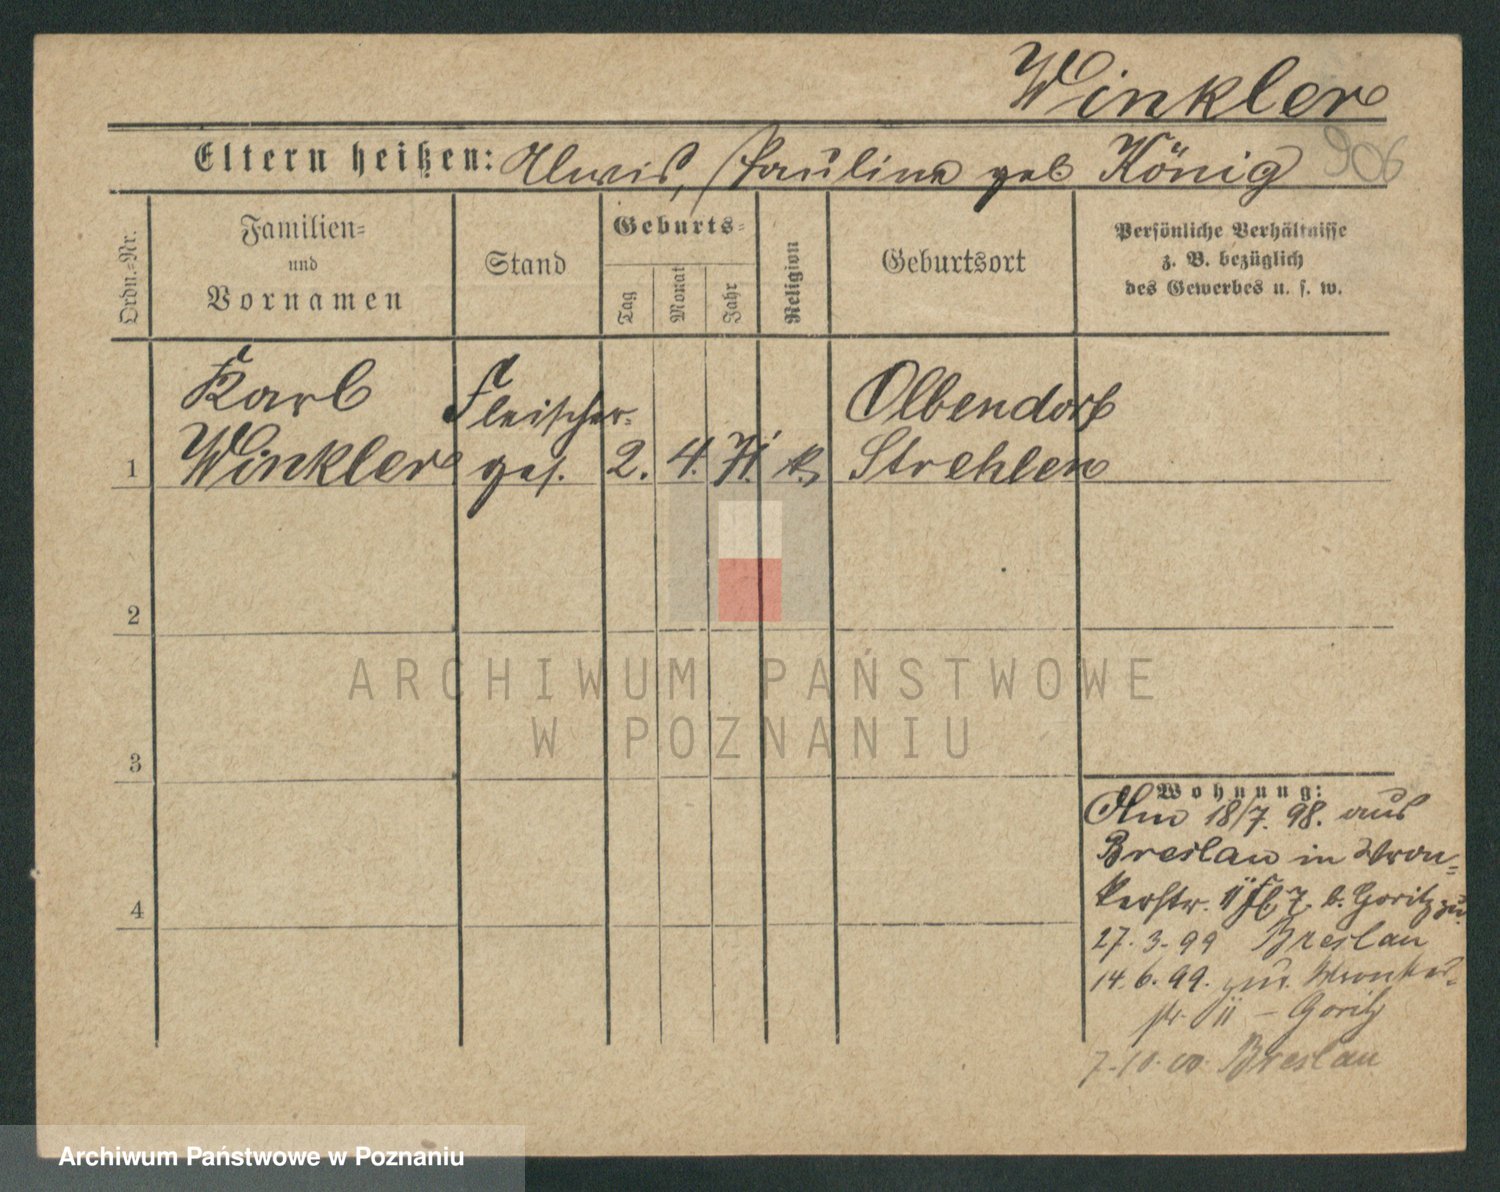 Winkler
906
Eltern heißen: Alwis, Pauline geb König
Ordn.=Nr.
Familien=
und
Vornamen
Stand
Geburts=
Tag
Monat
Jahr
Religion
Geburtsort
Persönliche Verhältnisse
z. B. bezüglich
des Gewerbes u. s. w.
Karl Fleischer= Olbendorf
1 Winkler ges. 2. 4. 71. k. Strehlen
2
3
4
Wohnung:
Am 18/7. 98. aus
Breslau in Wron=
kerstr. 11 b. Goritz zu
27. 3. 99 Breslau
14. 6. 99. zur. Wronker=
str. 11 – Goritz
7. 10. 00 Breslau
ARCHIWUM PAŃSTWOWE
W POZNANIU
Archiwum Państwowe w Poznaniu